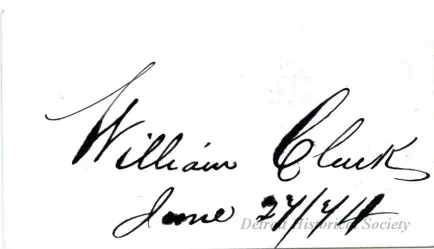 William Clark
June 27/44
Detroit Historical Society